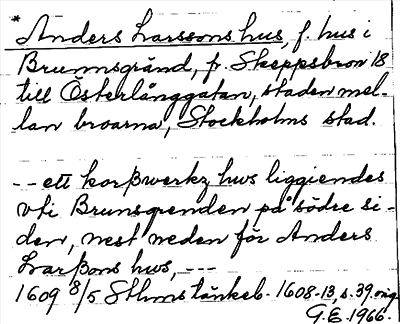 * Anders Larssons hus, f. hus i
Brunnsgränd, fr. Skeppsbron 18
till Österlånggatan, staden mel-
lan broarna, Stockholms stad.
-- ett korßwerkz hws liggiendes
vti Brunsgrenden på södre si-
den, nest neden för Anders
Larßons hws, ---
1609 8/5 Sthms tänkeb. 1608-13, s. 39 orig
G.E. 1966.